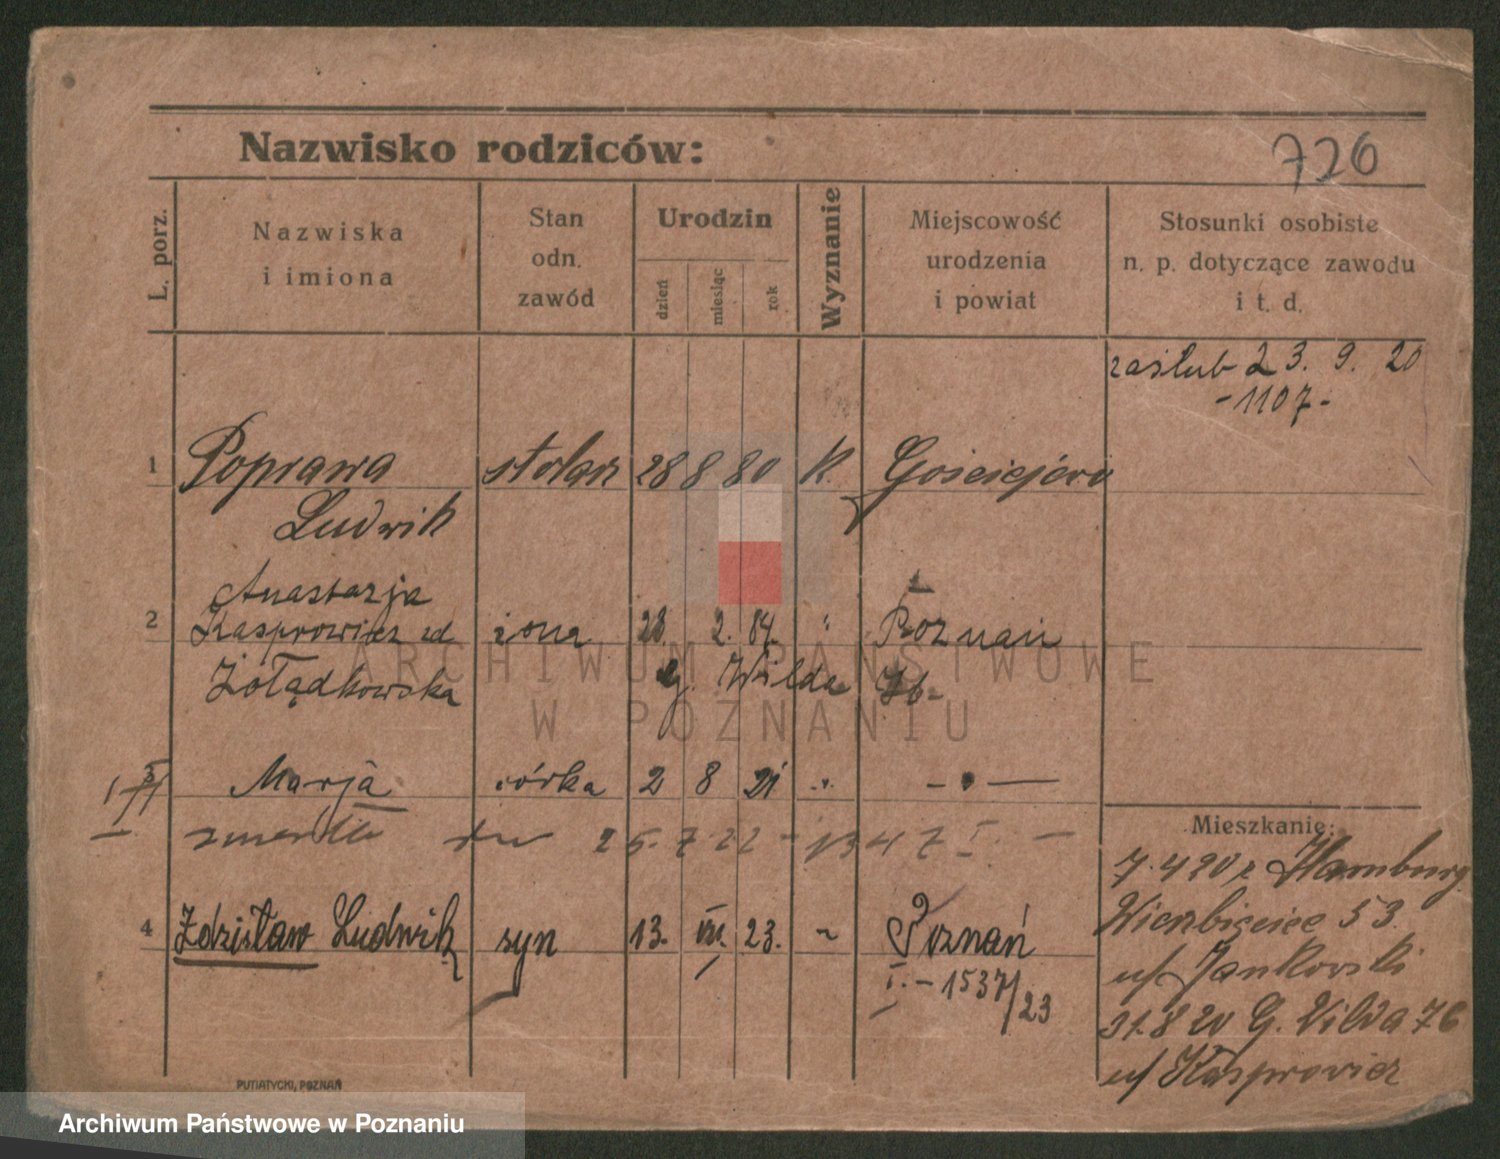 Nazwisko rodziców:
726
L. porz.
Nazwiska
i imiona
Stan
odn.
zawód
Urodzin
dzień
miesiąc
rok
Wyznanie
Miejscowość
urodzenia
i powiat
Stosunki osobiste
n. p. dotyczące zawodu
i t. d.
zaślub 23. 9. 20
-1107-
1 Poprawa stolarz 28 8 80 K. Gościejewo
Ludwik
Anastazja
2 Kasprowicz zd żona 28. 2. 84. " Poznań
Żołądkowska G. Wilda 76
3 Marja córka 2 8 21 " - " -
zmarła 25. 7 22 - 1347 I. -
4 Zdzisław Ludwik syn 13. VIII. 23. " Poznań
I. - 1537/23
Mieszkanie:
7.4 20 z Hamburg
Wierzbięcice 53.
u/ Jankowski
31.8 20 G. Wilda 76
u/ Kasprowicz
PUTIATYCKI, POZNAŃ
ARCHIWUM PAŃSTWOWE
W POZNANIU
Archiwum Państwowe w Poznaniu